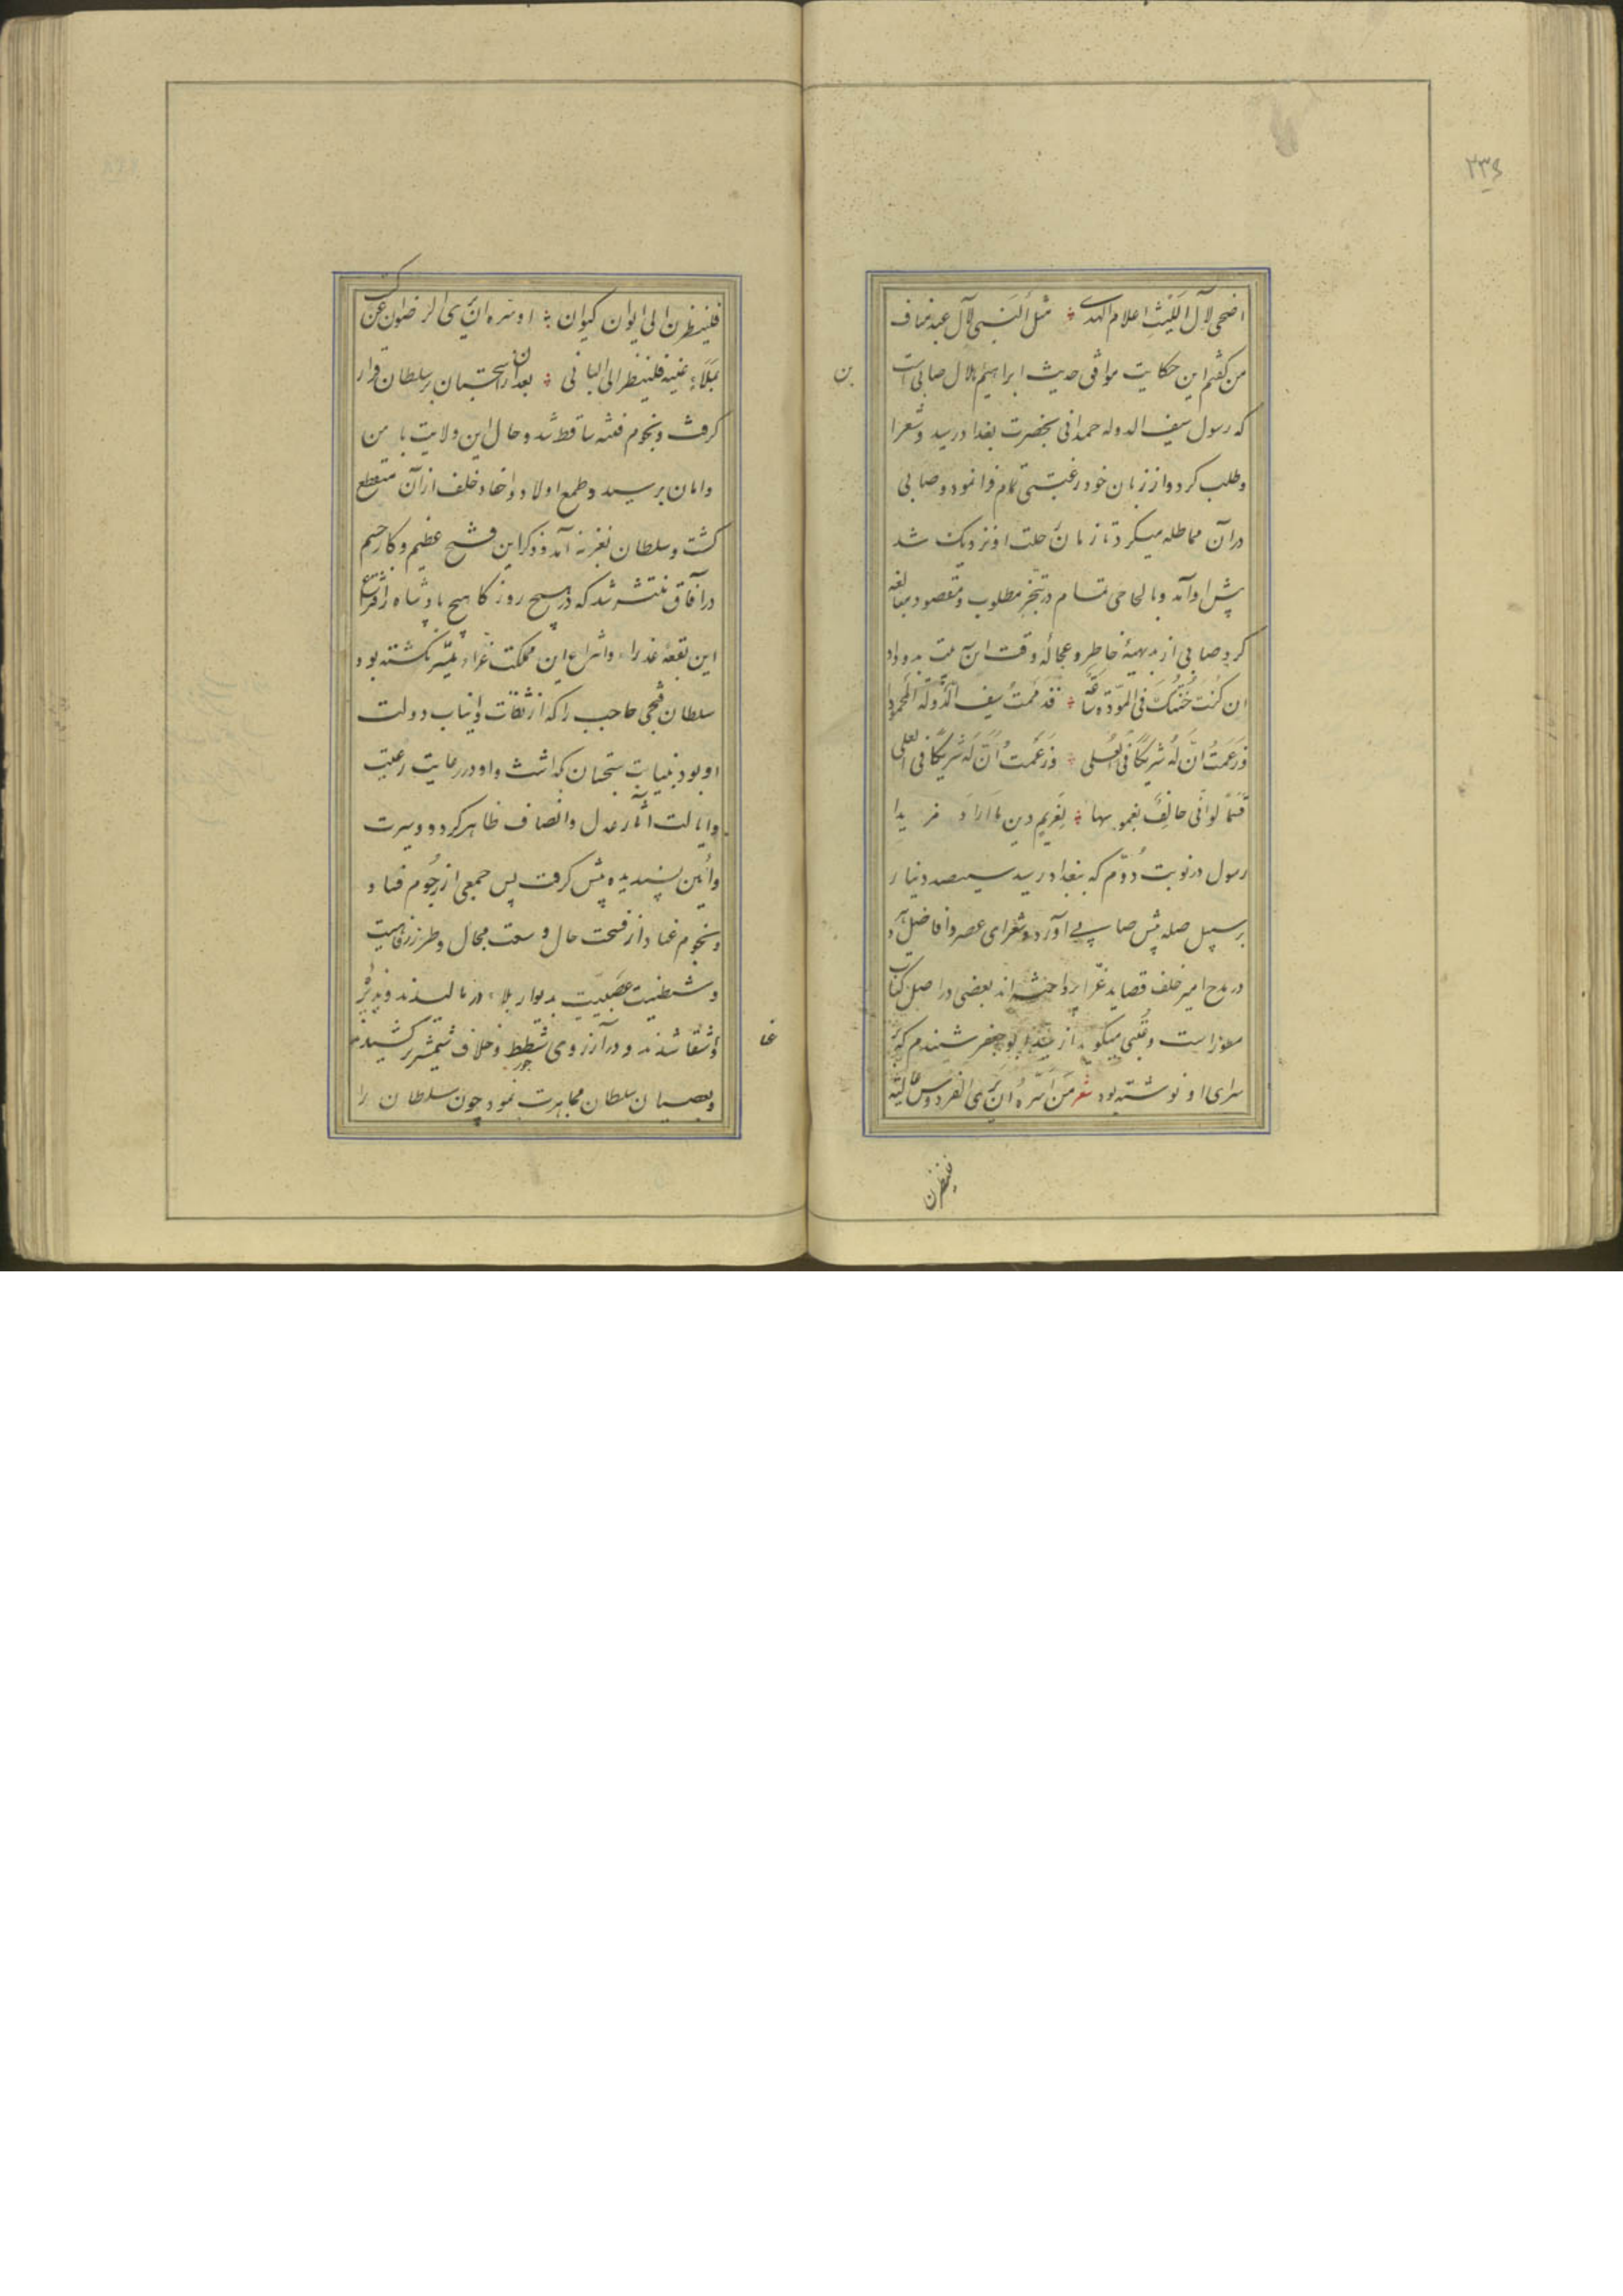 ۲۳۶
اضحی لآل اللیث اعلام الهدی مثل النبی لآل عبد مناف
من گفتم این حکایت موافق حدیث ابراهیم هلال صابی است
بن
که رسول سیف الدوله حمدانی بحضرت بغداد رسید و شعرا
و طلب کرد و از زبان خود رغبتی تمام فرا نمود و صابی
در آن مماطله میکرد تا زمان رحلت او نزدیک شد
پش او آمد و بالحاحی تمام در تنجز مطلوب و مقصود مبالغه
کرد صابی از بدیهۀ خاطر و عجالۀ وقت این بیت بدو داد
ان کنت خنتک فی المودة ساعة فذممت سیف الدولة المحمودا
وزعمت ان له شریکا فی العلی وزعمت ان له شریکا فی العلی
قسما لو انی حالف بغموسها لغریم دین ما اراد مزیدا
رسول در نوبت دوم که ببغداد رسید سیصد دینار
بر سبیل صله پش صابی آورد و شعرای عصر و افاضل دهر
در مدح امیر خلف قصاید غرا پرداخته اند بعضی در اصل کتاب
مسطور است و عتبی میگوید از پدر بو جعفر شنیدم که بر
سرای او نوشته بود شعر من سره ان یری الفردوس عالیة
فلینظرن
فلینظرن الی ایوان کیوان او سره ان یری الرضوان عن کثب
بملاء عینیه فلینظر الی البانی بعد از آن سجستان بر سلطان قرار
گرفت و نجوم فتنه ساقط شد و حال این ولایت با من
و امان رسید و طمع اولاد و احفاد خلف از آن منقطع
گشت و سلطان بغزنه آمد و ذکر این فتح عظیم و کار جسیم
در آفاق منتشر شد که در هیچ روزگار هیچ پادشاه را افتراع
این بقعۀ عذراء و انتزاع این مملکت غراء میسر نگشته بود
سلطان قجی حاجب را که از ثقات و انیاب دولت
او بود بنیابت سجستان گذاشت و او در رعایت رعیت
و ایالت آثار عدل و انصاف ظاهر کرد و سیرت
و آئین پسندیده پش گرفت پس جمعی از رجوم فساد
و نجوم عناد از فسحت حال و سعت مجال و طرز رفاهیت
و شیطنیت عصبیت بدیوار بلاء در مالیدند و پذیر
غا
و شقا شدند و در آرزوی شطط و خلاف شمشیر کشیدند
و بعصیان سلطان مجاهرت نمود چون سلطان را